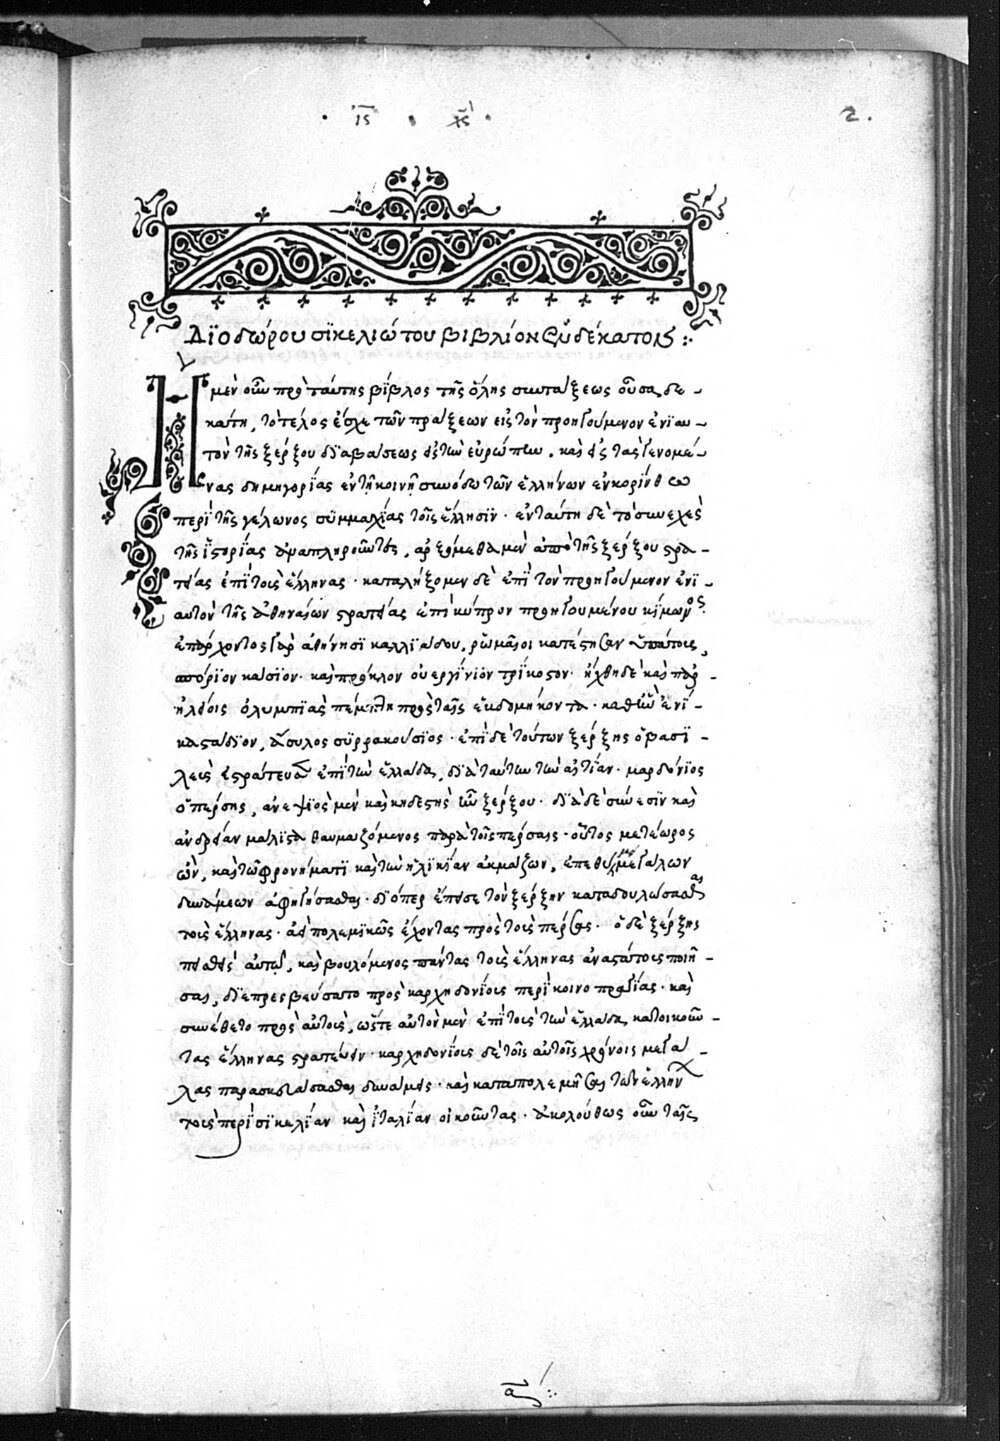 ι̅ς̅ χ̅ς̅
2.
Διοδώρου σικελιώτου βιβλίον ενδέκατον :·
Ἡ μὲν οὖν πρὸ ταύτης βίβλος τῆς ὅλης συντάξεως οὖσα δε-
κάτη, τὸ τέλος ἔσχε τῶν πράξεων εἰς τὸν προηγούμενον ἐνιαυ-
τὸν τῆς ξέρξου διαβάσεως εἰς τὴν εὐρώπην. καὶ εἰς τὰς γενομέ-
νας δημηγορίας ἐν τῇ κοινῇ συνόδω τῶν ἑλλήνων ἐν κορίνθω
περὶ τῆς γέλωνος συμμαχίας τοῖς ἕλλησιν· ἐν ταύτη δὲ τὸ συνεχὲς
τῆς ἱστορίας ἀναπληροῦντες, ἀρξόμεθα μὲν ἀπὸ τῆς ξέρξου στρα-
τείας ἐπὶ τοὺς ἕλληνας· καταλήξομεν δὲ ἐπὶ τὸν προηγούμενον ἐνι-
αυτὸν τῆς ἀθηναίων στρατείας ἐπὶ κύπρον ἡγουμένου κίμωνος.
ἐπάρχοντος γὰρ ἀθήνησι καλλιάδου, ῥωμαῖοι κατέστησαν ὑπάτους,
σπόριον κάσιον· καὶ πρόκλον οὐεργίνιον τρίκοστον· ἤχθη δὲ καὶ παρ-
ηλείοις ὀλυμπιὰς πέμπτη πρὸς ταῖς ἑβδομήκοντα· καθ' ἣν ἐνί-
κα στάδιον, ἄσυλος συρρακούσιος· ἐπὶ δὲ τούτων ξέρξης ὁ βασι-
λεὺς ἐστράτευσεν ἐπὶ τὴν ἑλλάδα, διὰ ταύτην τὴν αἰτίαν· μαρδόνιος
ὁ πέρσης, ἀνεψιὸς μὲν καὶ κηδεστὴς ἦν ξέρξου· διὰ δὲ σύνεσιν καὶ
ἀνδρείαν μάλιστα θαυμαζόμενος παρὰ τοῖς πέρσαις· οὗτος μετέωρος
ὢν, καὶ τῶ φρονήματι καὶ τὴν ἡλικίαν ἀκμάζων, ἐπεθύμει μεγάλων
δυνάμεων ἀφηγήσασθαι· διόπερ ἔπεισε τὸν ξέρξην καταδουλώσασθαι
τοὺς ἕλληνας· ἀεὶ πολεμικῶς ἔχοντας πρὸς τοὺς πέρσας· ὁ δὲ ξέρξης
πεισθεὶς αὐτῶ, καὶ βουλόμενος πάντας τοὺς ἕλληνας ἀναστάτους ποιῆ-
σαι, διεπρεσβεύσατο πρὸς καρχηδονίους περὶ κοινοπραγίας· καὶ
συνέθετο πρὸς αὐτοὺς, ὥστε αὐτὸν μὲν ἐπὶ τοὺς τὴν ἑλλάδα κατοικοῦν-
τας ἕλληνας στρατεύειν· καρχηδονίους δὲ τοῖς αὐτοῖς χρόνοις μεγά-
λας παρασκευάσασθαι δυνάμεις· καὶ καταπολεμῆσαι τῶν ἑλλήνων
τοὺς περὶ σικελίαν καὶ ἰταλίαν οἰκοῦντας· ἀκολούθως οὖν ταῖς
α